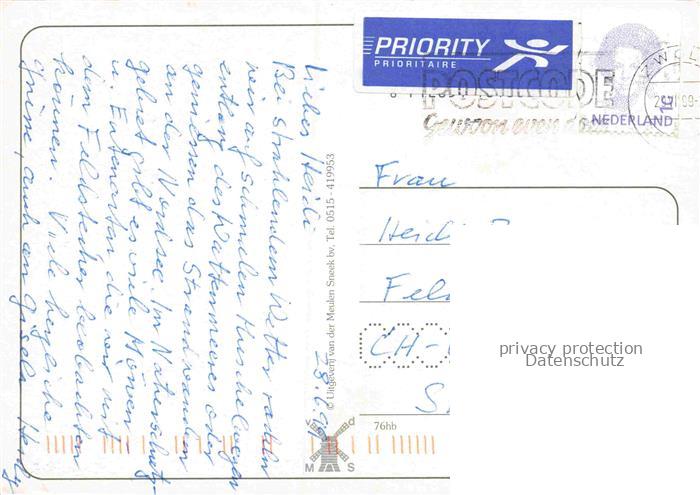 PRIORITY
PRIORITAIRE
POSTCODE
Gewoon even d
NEDERLAND
ZWOL
28.6.99
Liebes Heidi
Bei strahlendem Wetter radeln
wir auf schmalen Muschelwegen
entlang des Wattenmeeres oder
geniessen das Strandwandern
an der Nordsee. Im Naturschutz-
gebiet gibt es viele Möwen
u Entenarten, die wir mit
dem Feldstecher beobachten
können. Viele herzliche
Grüsse, auch an Gisela
© Uitgeverij van der Meulen Sneek bv. Tel. 0515 - 419953
Frau
Heidi
Fel
CH-
S
76hb
v d
M S
privacy protection
Datenschutz